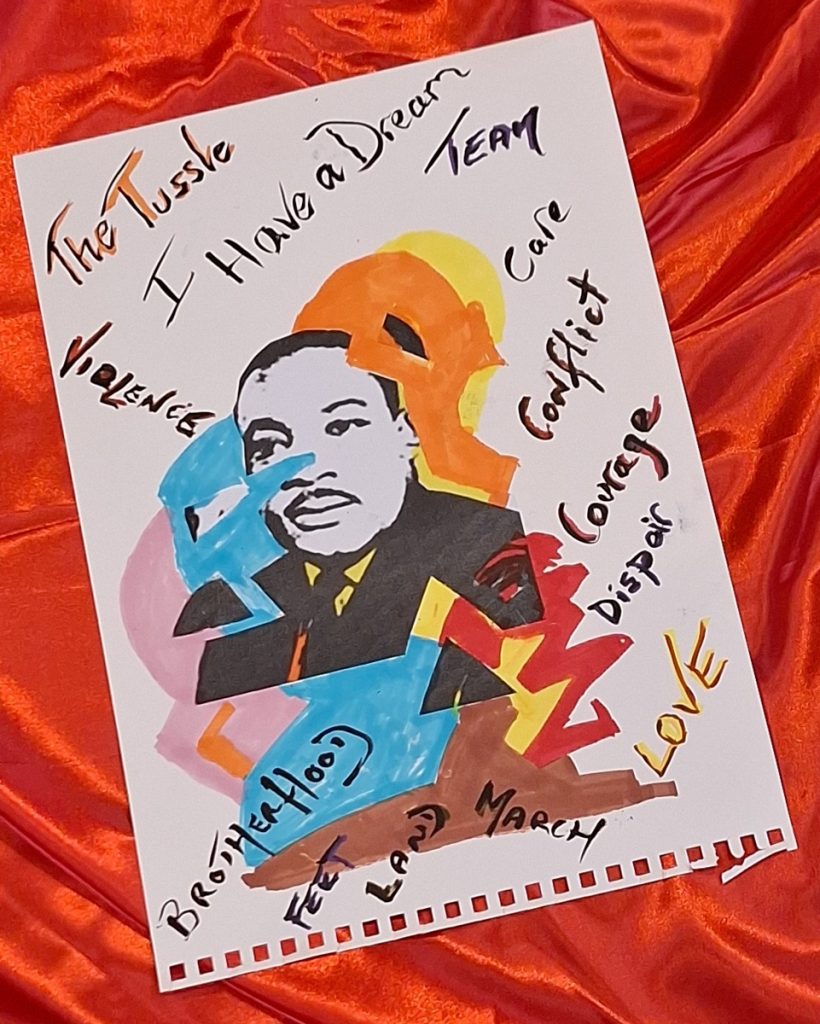 The Tussle
I Have a Dream
TEAM
Care
Conflict
Courage
Dispair
LOVE
VIOLENCE
BROTHERHOOD
FEET
LAND
MARCH